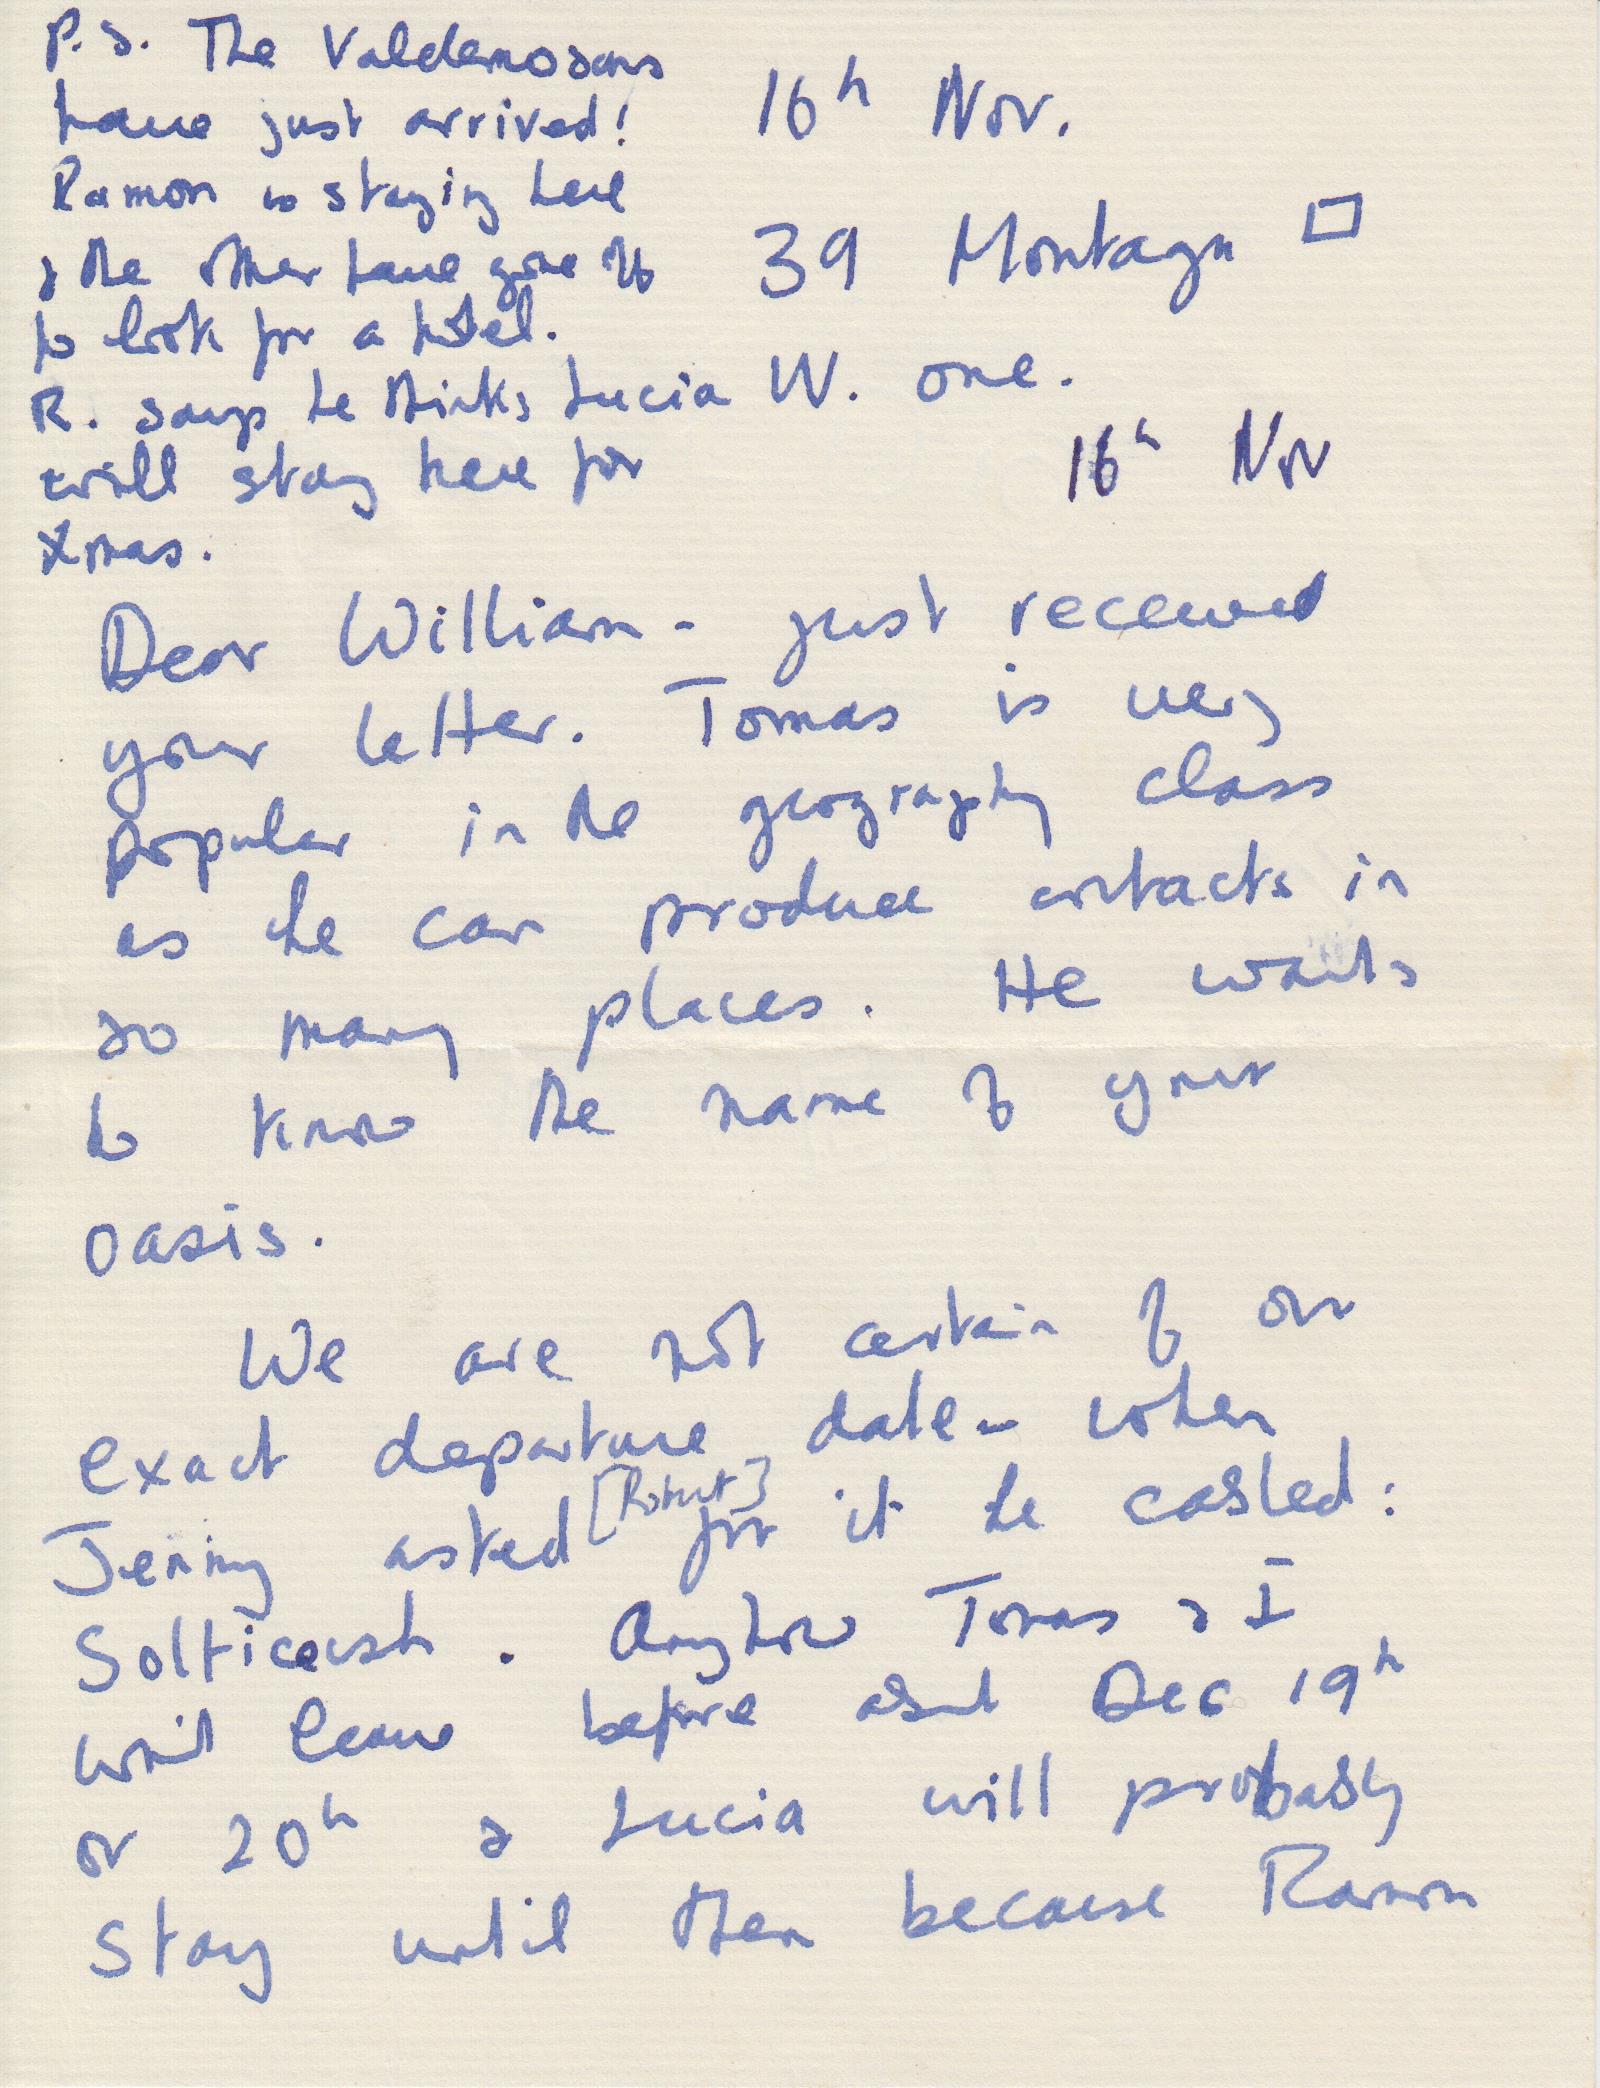 P.S. The Valdemosans
have just arrived!
Ramon is staying here
& the other have gone off
to look for a hotel.
R. says he thinks Lucia
will stay here for
Xmas.
16h Nov.
39 Montagu □
W. one.
16h Nov
Dear William - just received
your letter. Tomas is very
popular in the geography class
as he can produce contacts in
so many places. He wants
to know the name of your
oasis.
We are not certain of our
exact departure date - when
Jenny asked [Robert] for it he cabled:
Solticeish. Anyhow Tomas & I
wont leave before about Dec 19h
or 20h & Lucia will probably
stay until then because Ramon